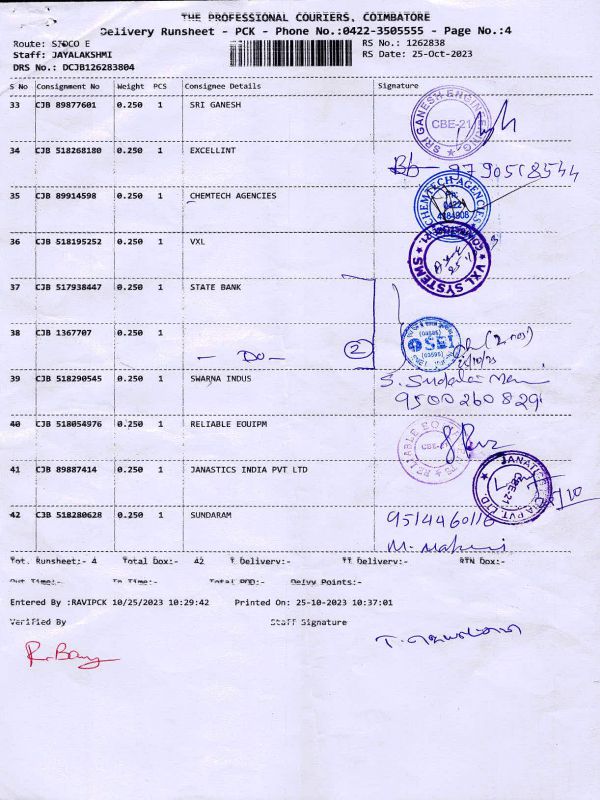 THE PROFESSIONAL COURIERS, COIMBATORE
Delivery Runsheet - PCK - Phone No.:0422-3505555 - Page No.:4
Route: SIDCO E RS No.: 1262838
Staff: JAYALAKSHMI RS Date: 25-Oct-2023
DRS No.: DCJB126283804
S No Consignment No Weight PCS Consignee Details Signature
33 CJB 89877601 0.250 1 SRI GANESH
SRI GANESH ENGINEERING
CBE-21
34 CJB 518268180 0.250 1 EXCELLINT
9790518544
35 CJB 89914598 0.250 1 CHEMTECH AGENCIES
CHEMTECH AGENCIES
0422
36 CJB 518195252 0.250 1 VXL
VXL SYSTEMS
37 CJB 517938447 0.250 1 STATE BANK
38 CJB 1367707 0.250 1
- Do - 2
SBI
39 CJB 518290545 0.250 1 SWARNA INDUS
9500260829
40 CJB 518054976 0.250 1 RELIABLE EQUIPM
41 CJB 89887414 0.250 1 JANASTICS INDIA PVT LTD
CBE-21
42 CJB 518280628 0.250 1 SUNDARAM 9514460116
Tot. Runsheet:- 4 Total Dox:- 42 T Delivery:- TT Delivery:- RTN Dox:-
Out Time:- In Time:- Total POD:- Delvy Points:-
Entered By :RAVIPCK 10/25/2023 10:29:42 Printed On: 25-10-2023 10:37:01
Verified By Staff Signature